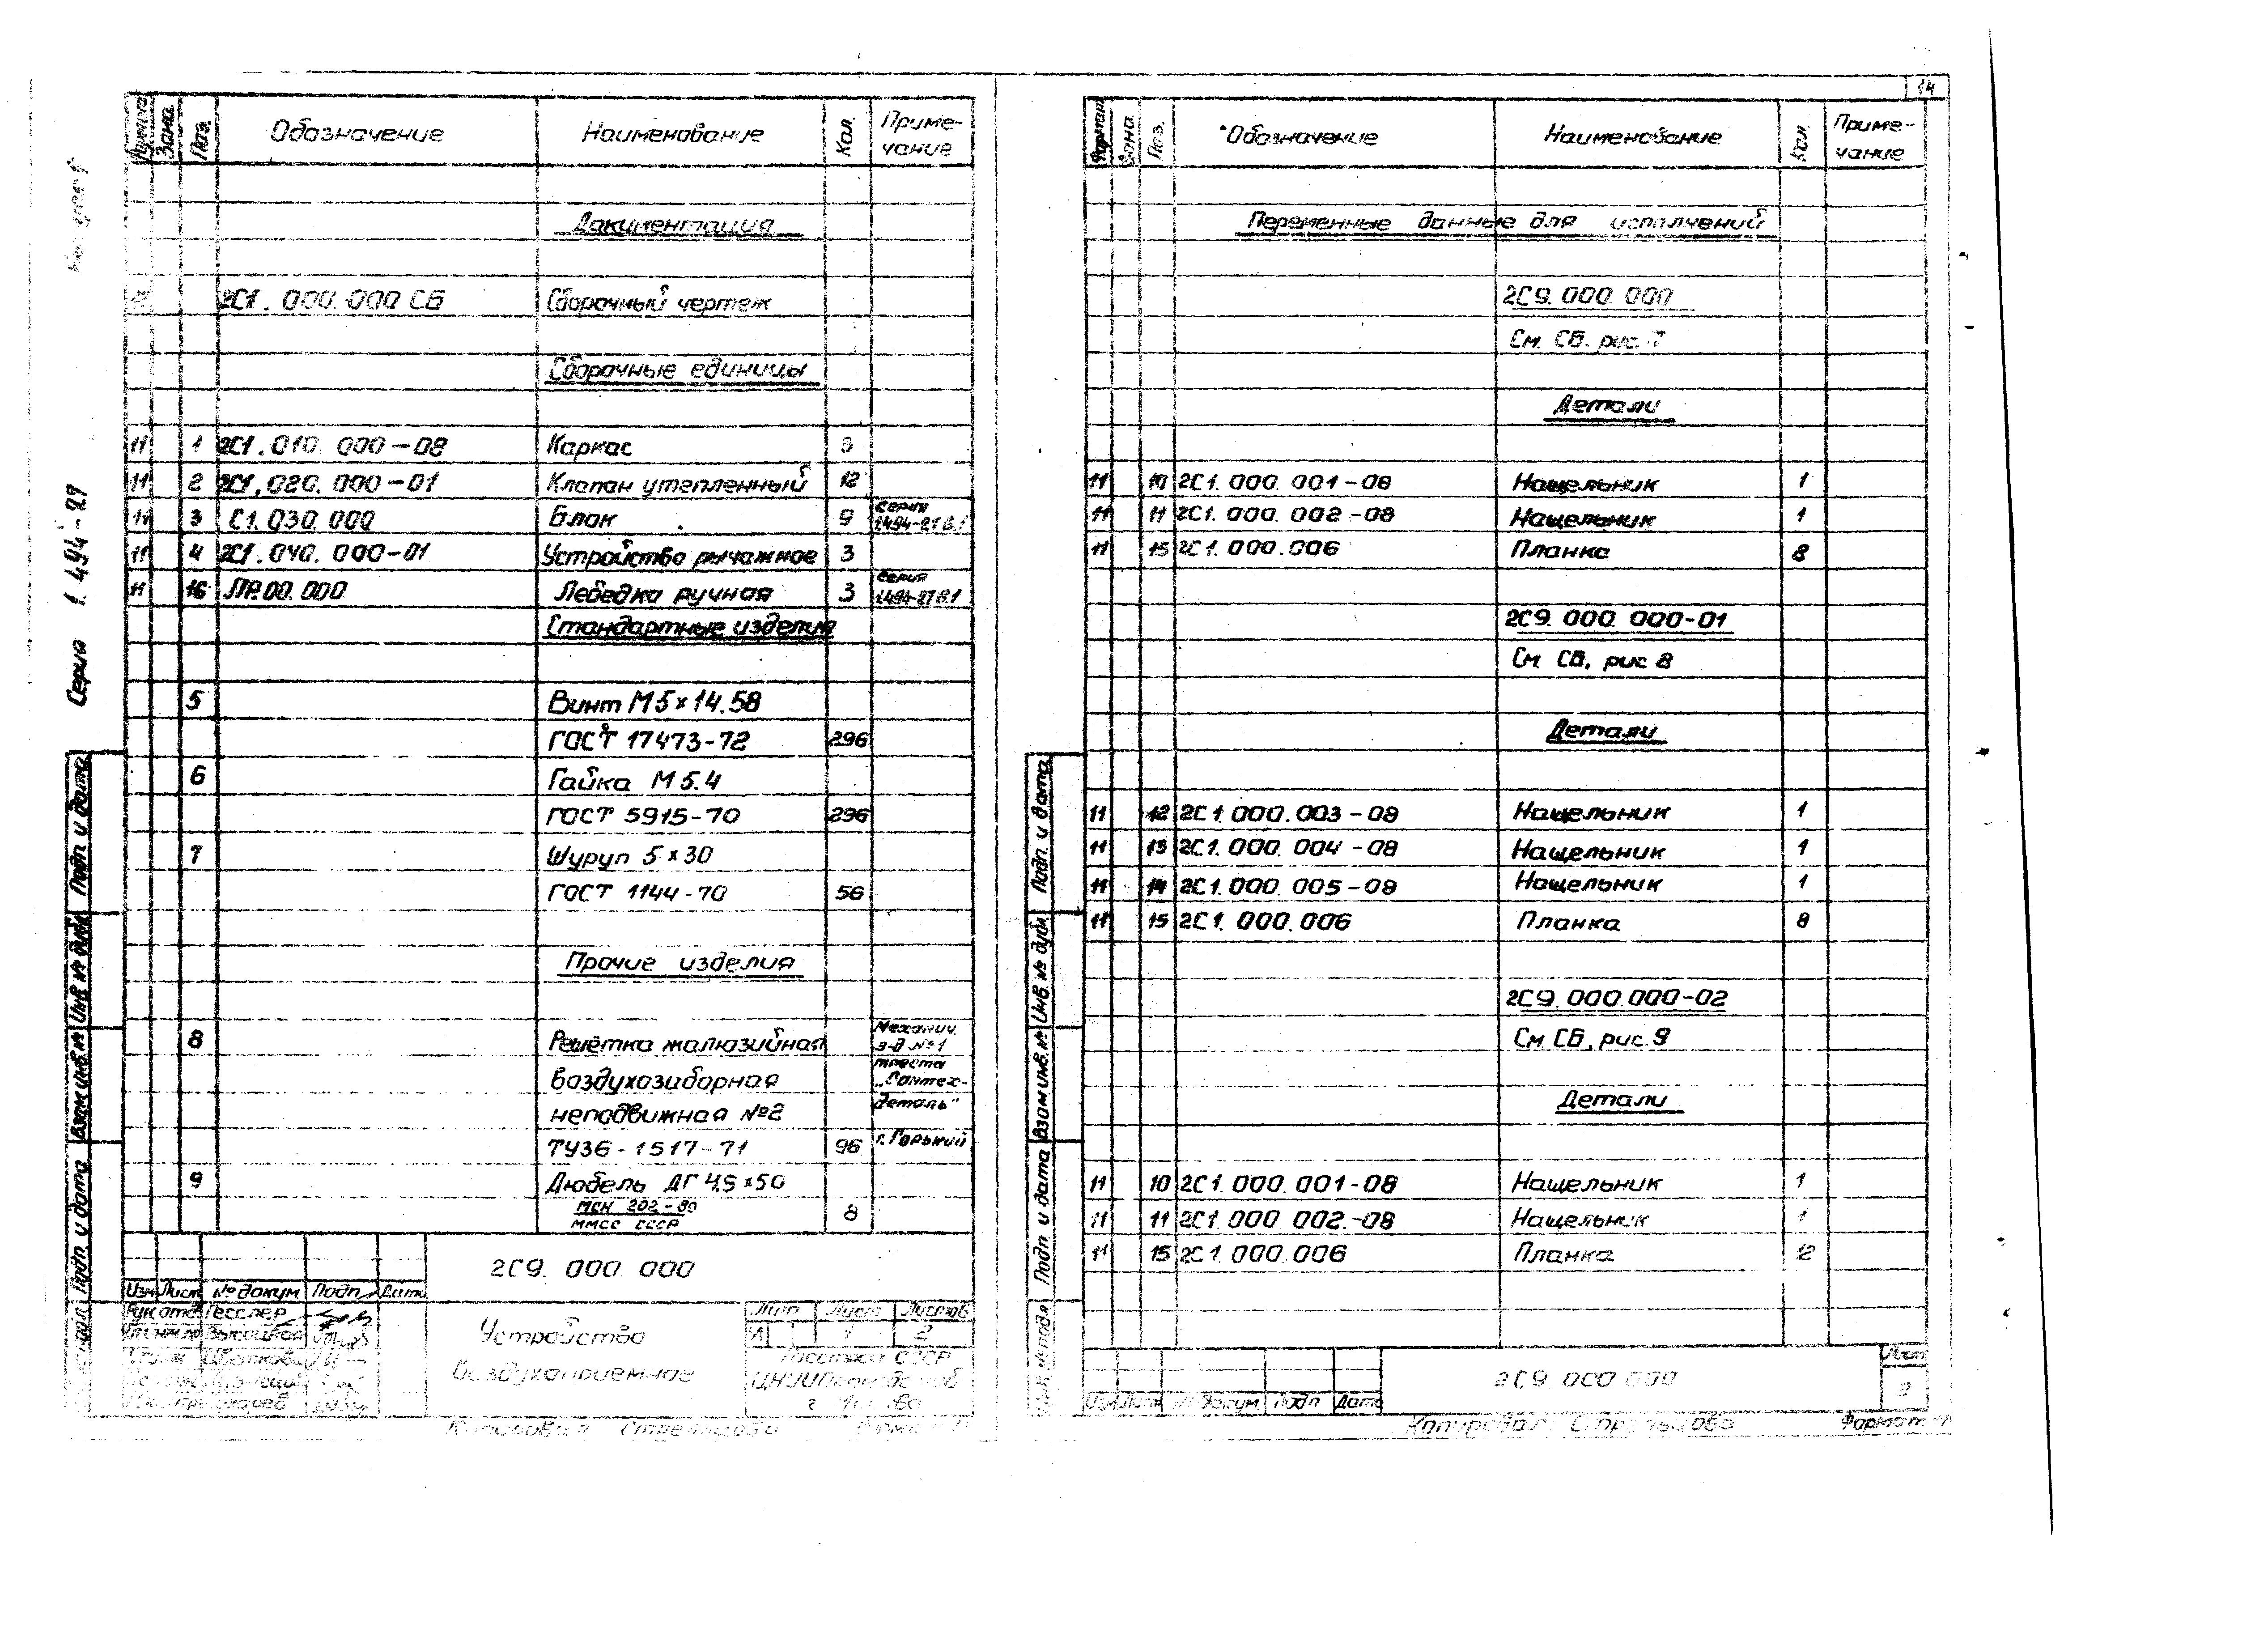 14
Серия 1.494-27
Зона
Поз.
Обозначение
Наименование
Кол.
Приме-
чание
Документация
2С1. 000. 000 СБ Сборочный чертеж
Сборочные единицы
11 1 2С1. 010. 000-08 Каркас
11 2 2С1. 020. 000-01 Клапан утепленный 12
11 3 С1. 030. 000 Блок 9 Серия 1.494-27 В.1
11 4 2С1. 040. 000-01 Устройство рычажное 3
11 16 ЛР.00. 000 Лебедка ручная 3 Серия 1.494-27 В.1
Стандартные изделия
5 Винт М5×14.58
ГОСТ 17473-72 296
6 Гайка М5.4
ГОСТ 5915-70 296
7 Шуруп 5×30
ГОСТ 1144-70 56
Прочие изделия
8 Решётка жалюзийная Механич. з-д №1
воздухозаборная треста „Сантех-
неподвижная №2 деталь"
ТУ36-1517-71 96 г. Горький
9 Дюбель ДГ 4,5×50
МСН 202-80
ММСС СССР 8
2С9. 000. 000
Изм Лист № докум Подп. Дата
Рук. отд Гесслер
Устройство
воздухоприемное
Лит Лист Листов
1 2
Госстрой СССР
Подп. и дата
Инв. № дубл.
Взам инв. №
Подп. и дата
Формат
Зона
Поз.
Обозначение
Наименование
Кол
Приме-
чание
Переменные данные для исполнений
2С9. 000. 000
См. СБ. рис. 7
Детали
11 10 2С1. 000. 001-08 Нащельник 1
11 11 2С1. 000. 002-08 Нащельник 1
11 15 2С1. 000. 006 Планка 8
2С9. 000. 000-01
См. СБ, рис 8
Детали
11 12 2С1. 000. 003-08 Нащельник 1
11 13 2С1. 000. 004-08 Нащельник 1
11 14 2С1. 000. 005-08 Нащельник 1
11 15 2С1. 000. 006 Планка 8
2С9. 000. 000-02
См СБ, рис. 9
Детали
11 10 2С1. 000. 001-08 Нащельник 1
11 11 2С1. 000 002-08 Нащельник 1
11 15 2С1. 000. 006 Планка 12
Подп. и дата
Инв. № дубл.
Взам инв. №
Подп и дата
2С9 000 000
Лист
2
Изм Лист № докум Подп Дата
Копировал
Формат 11